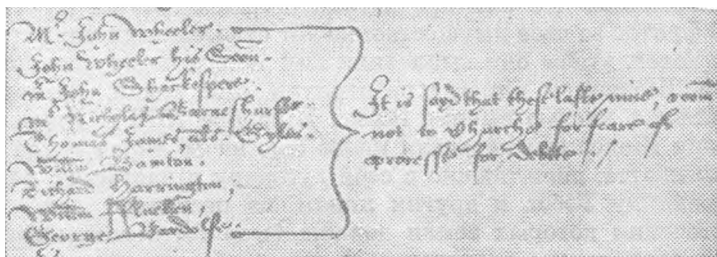 Mr. John Wheeler.
John Wheeler his Soon.
Mr John Shackespere.
Mr Nicholas Barneshurste.
Thomas James, als Gyles.
Willm Bainton.
Richard Harrington,
Willm Fluellen,
George Bardolfe.
It is sayd that these laste nine, coom
not to Churche for feare of
processe for debte.